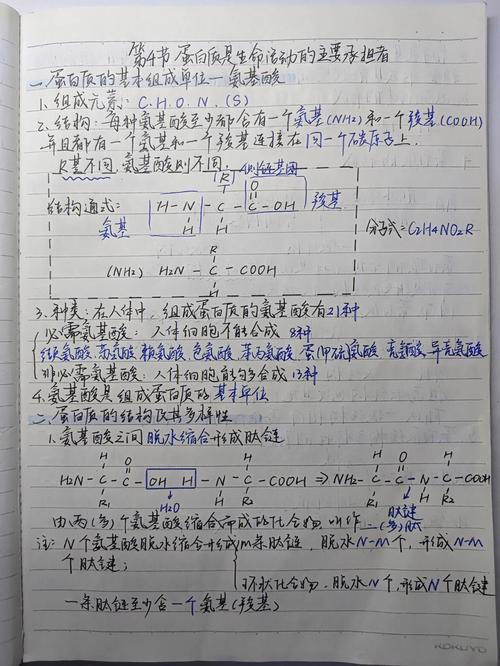 第4节 蛋白质是生命活动的主要承担者
一、蛋白质的基本组成单位—氨基酸
1、组成元素：C.H.O.N.(S)
2、结构：每种氨基酸至少都含有一个氨基(NH2)和一个羧基(COOH)
并且都有一个氨基和一个羧基连接在同一个碳原子上.
R基不同,氨基酸则不同.
R 侧链基团
O
结构通式： H—N—C—C—OH 羧基
氨基 H H
分子式：C2H4NO2R
R
(NH2) H2N—C—COOH
H
3、种类：在人体中，组成蛋白质的氨基酸有21种
必需氨基酸：人体细胞不能合成 8种
缬氨酸 苏氨酸 赖氨酸 色氨酸 苯丙氨酸 蛋(甲硫)氨酸 亮氨酸 异亮氨酸
非必需氨基酸：人体细胞能够合成 13种
4、氨基酸是组成蛋白质的基本单位
二、蛋白质的结构及其多样性
1、氨基酸之间脱水缩合形成肽链
H O H H O H
H2N—C—C—OH H—N—C—COOH ⇒ NH2—C—C—N—C—COOH
R1 H R2 R1 H R2
H2O 肽键
由两(多)个氨基酸缩合而成的化合物,叫作二(多)肽
注：N个氨基酸脱水缩合形成m条肽链，脱水N-M个，形成N-M
个肽键；
环状化合物，脱水N个,形成N个肽键
一条肽链至少含一个氨基(羧基)
KOKUYO